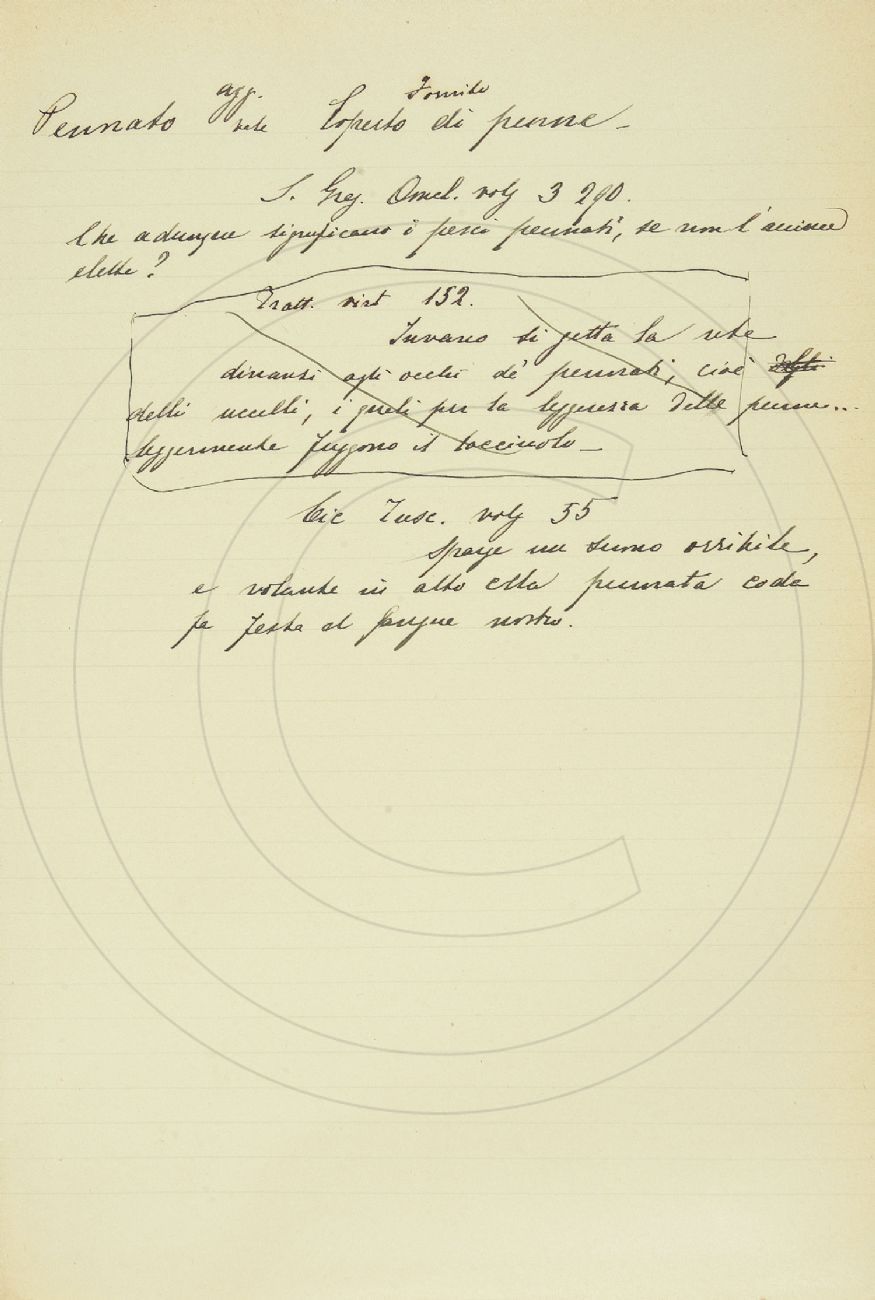 Pennato agg. Fornito
vete Coperto di penne –
S. Greg. Omel. volg 3 290.
Che adunque significano i pesci pennati, se non l'anime
elette?
Tratt. virt 152.
Invano si getta la rete
dinanzi agli occhi de' pennati, cioè
delli uccelli, i quali per la leggerezza delle penne...
leggermente fuggono il lacciuolo –
Cic Tusc. volg 55
Sparge un sumo orribile,
e volante in alto colla pennata coda
fa festa al sangue nostro.